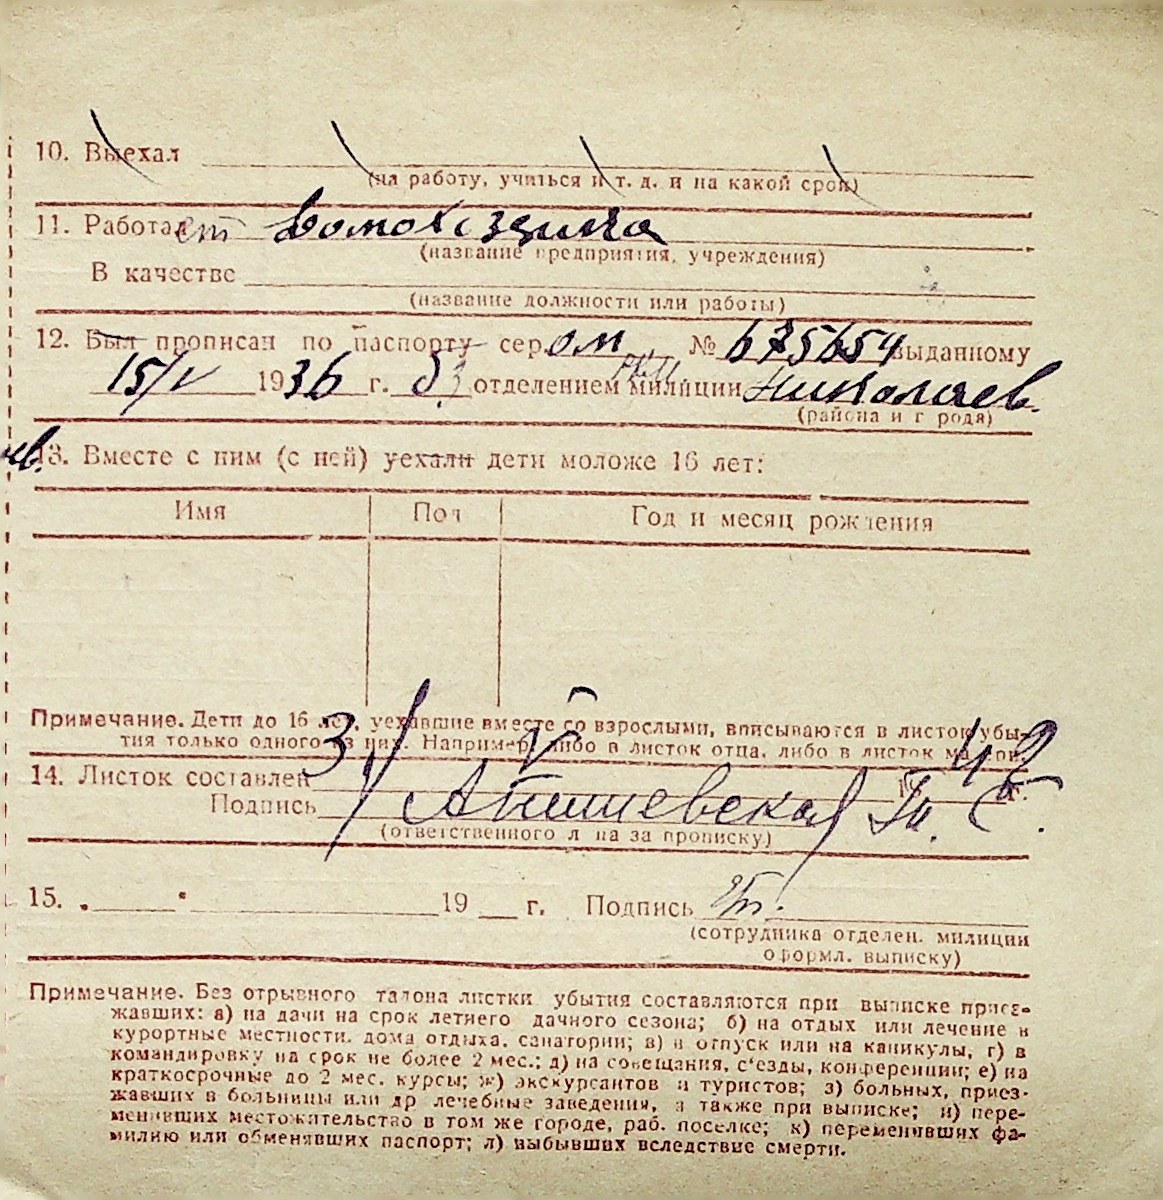 10. Выехал
(на работу, учиться и т. д. и на какой срок)
11. Работает домохозяйка
(название предприятия, учреждения)
В качестве
(название должности или работы)
12. Был прописан по паспорту сер. ОМ № 675654 выданному
15/V 1936 г. отделением милиции Николаев.
(района и города)
13. Вместе с ним (с ней) уехали дети моложе 16 лет:
Имя Пол Год и месяц рождения
Примечание. Дети до 16 лет, уехавшие вместе со взрослыми, вписываются в листок убы-
тия только одного из них. Например, либо в листок отца, либо в листок матери.
14. Листок составлен 3/V 42 г.
Подпись
(ответственного лица за прописку)
15. „ “ 19 г. Подпись
(сотрудника отделен. милиции
оформл. выписку)
Примечание. Без отрывного талона листки убытия составляются при выписке приез-
жавших: а) на дачи на срок летнего дачного сезона; б) на отдых или лечение в
курортные местности, дома отдыха, санатории; в) в отпуск или на каникулы, г) в
командировку на срок не более 2 мес.; д) на совещания, с'езды, конференции; е) на
краткосрочные до 2 мес. курсы; ж) экскурсантов и туристов; з) больных, приез-
жавших в больницы или др лечебные заведения, а также при выписке; и) пере-
менивших местожительство в том же городе, раб. поселке; к) переменивших фа-
милию или обменявших паспорт; л) выбывших вследствие смерти.